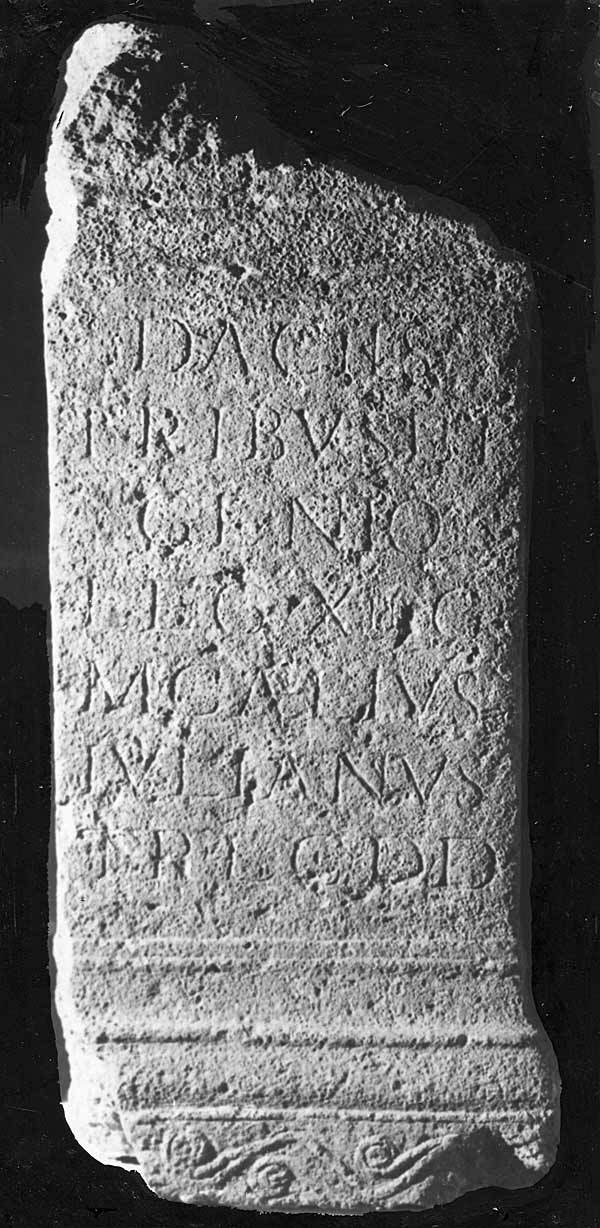 DACIIS
TRIBVS ET
GENIO
LEG XIII G
M GALIVS
IVLIANVS
TR L G D D